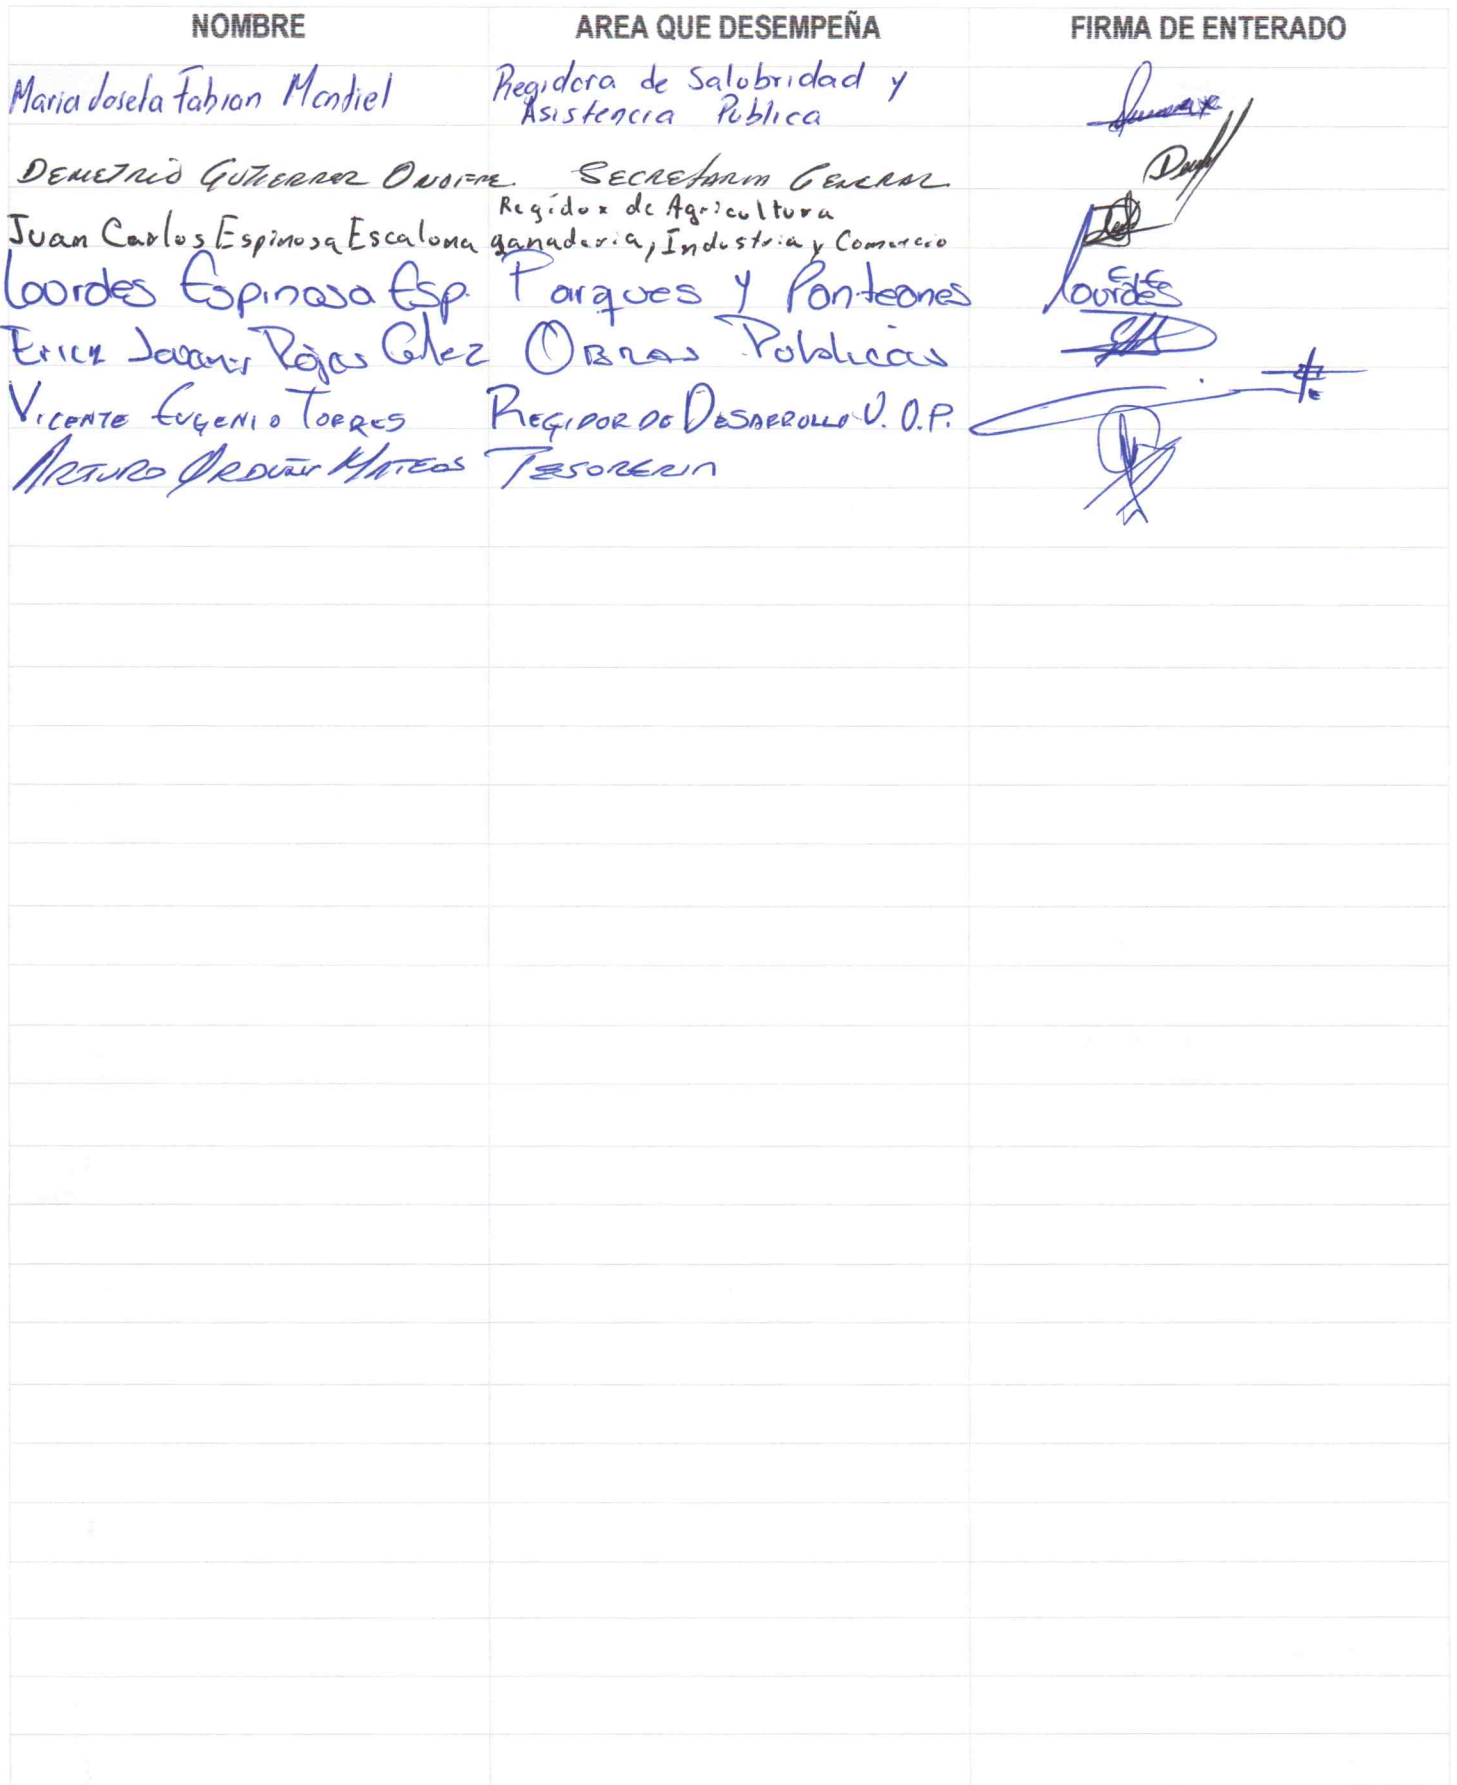 NOMBRE AREA QUE DESEMPEÑA FIRMA DE ENTERADO
Maria Josefa Fabian Montiel Regidora de Salubridad y
Asistencia Publica
DEMETRIO GUTIERREZ SECRETARIA GENERAL
Regidor de Agricultura
Juan Carlos Espinosa Escalona ganaderia, Industria y Comercio
Lourdes Espinosa Esp. Parques y Panteones Lourdes
Erick Rojas OBRAS Publicas
VICENTE EUGENIO TORRES REGIDOR DE DESARROLLO U. O.P.
ARTURO ORDUÑA MATEOS TESORERIA